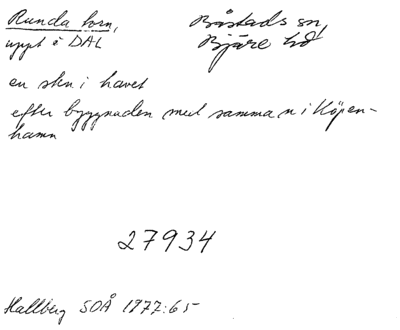 Runda torn,
uppt i DAL
Båstads sn,
Bjäre hd
en sten i havet
efter byggnaden med samma n i Köpen-
hamn
27934
Hallberg SOÅ 1977:65